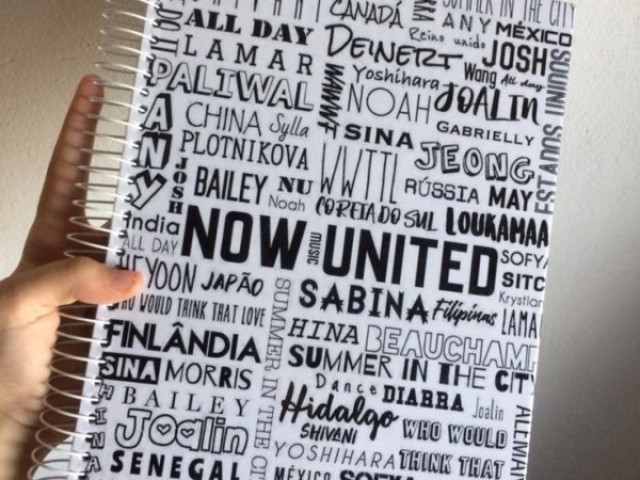 CANADÁ
SUMMER IN THE CITY
ANY MÉXICO
ALL DAY
Reino unido
DEINERT JOSH
LAMAR
Wang All day
Yoshihara
PALIWAL
NOAH JOALIN
CHINA Sylla
SINA GABRIELLY
ANY
PLOTNIKOVA
WWTTL
JEONG
ESTADOS UNIDOS
JOSH
BAILEY NU
RÚSSIA MAY
Noah
COREIA DO SUL LOUKAMAA
India
ALL DAY
NOW UNITED
MUSIC
SOFYA
HEYOON JAPÃO
SITC
SABINA Filipinas
Krystian
LAMA
WHO WOULD THINK THAT LOVE
HINA BEAUCHAMP
FINLÂNDIA
SUMMER IN THE CITY
SUMMER IN THE CI
SINA MORRIS
Dance DIARRA Joalin
HINA
BAILEY
Hidalgo
SHIVANI WHO WOULD
ALEMAN
Joalin
YOSHIHARA THINK THAT
SENEGAL
MÉXICO SOFYA